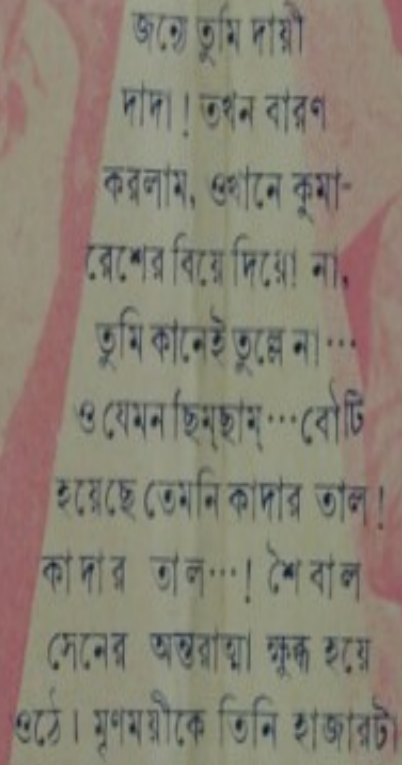 জন্যে তুমি দায়ী
দাদা! তখন বারণ
করলাম, ওখানে কুমা-
রেশের বিয়ে দিয়ো না,
তুমি কানেই তুল্লে না···
ও যেমন ছিম্‌ছাম্‌···বৌটি
হয়েছে তেমনি কাদার তাল!
কাদার তাল···! শৈবাল
সেনের অন্তরাত্মা ক্ষুব্ধ হয়ে
ওঠে। মৃণময়ীকে তিনি হাজারটা